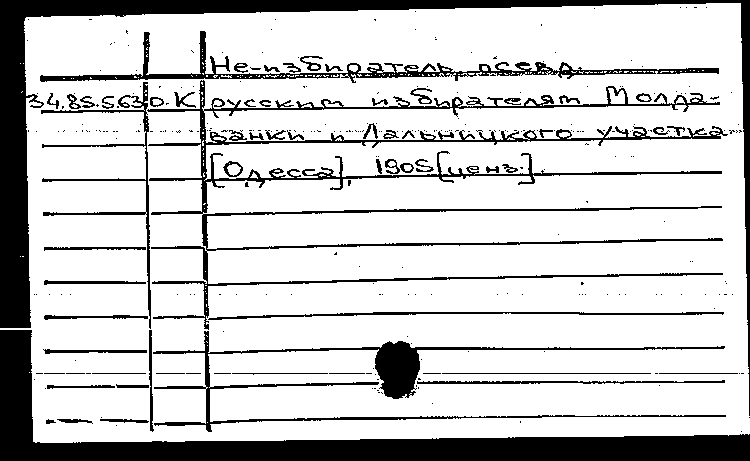 Не-избиратель, псевд.
34.85.563 о.К русским избирателям Молда-
ванки и Дальницкого участка.
[Одесса], 1905 [ценз.].